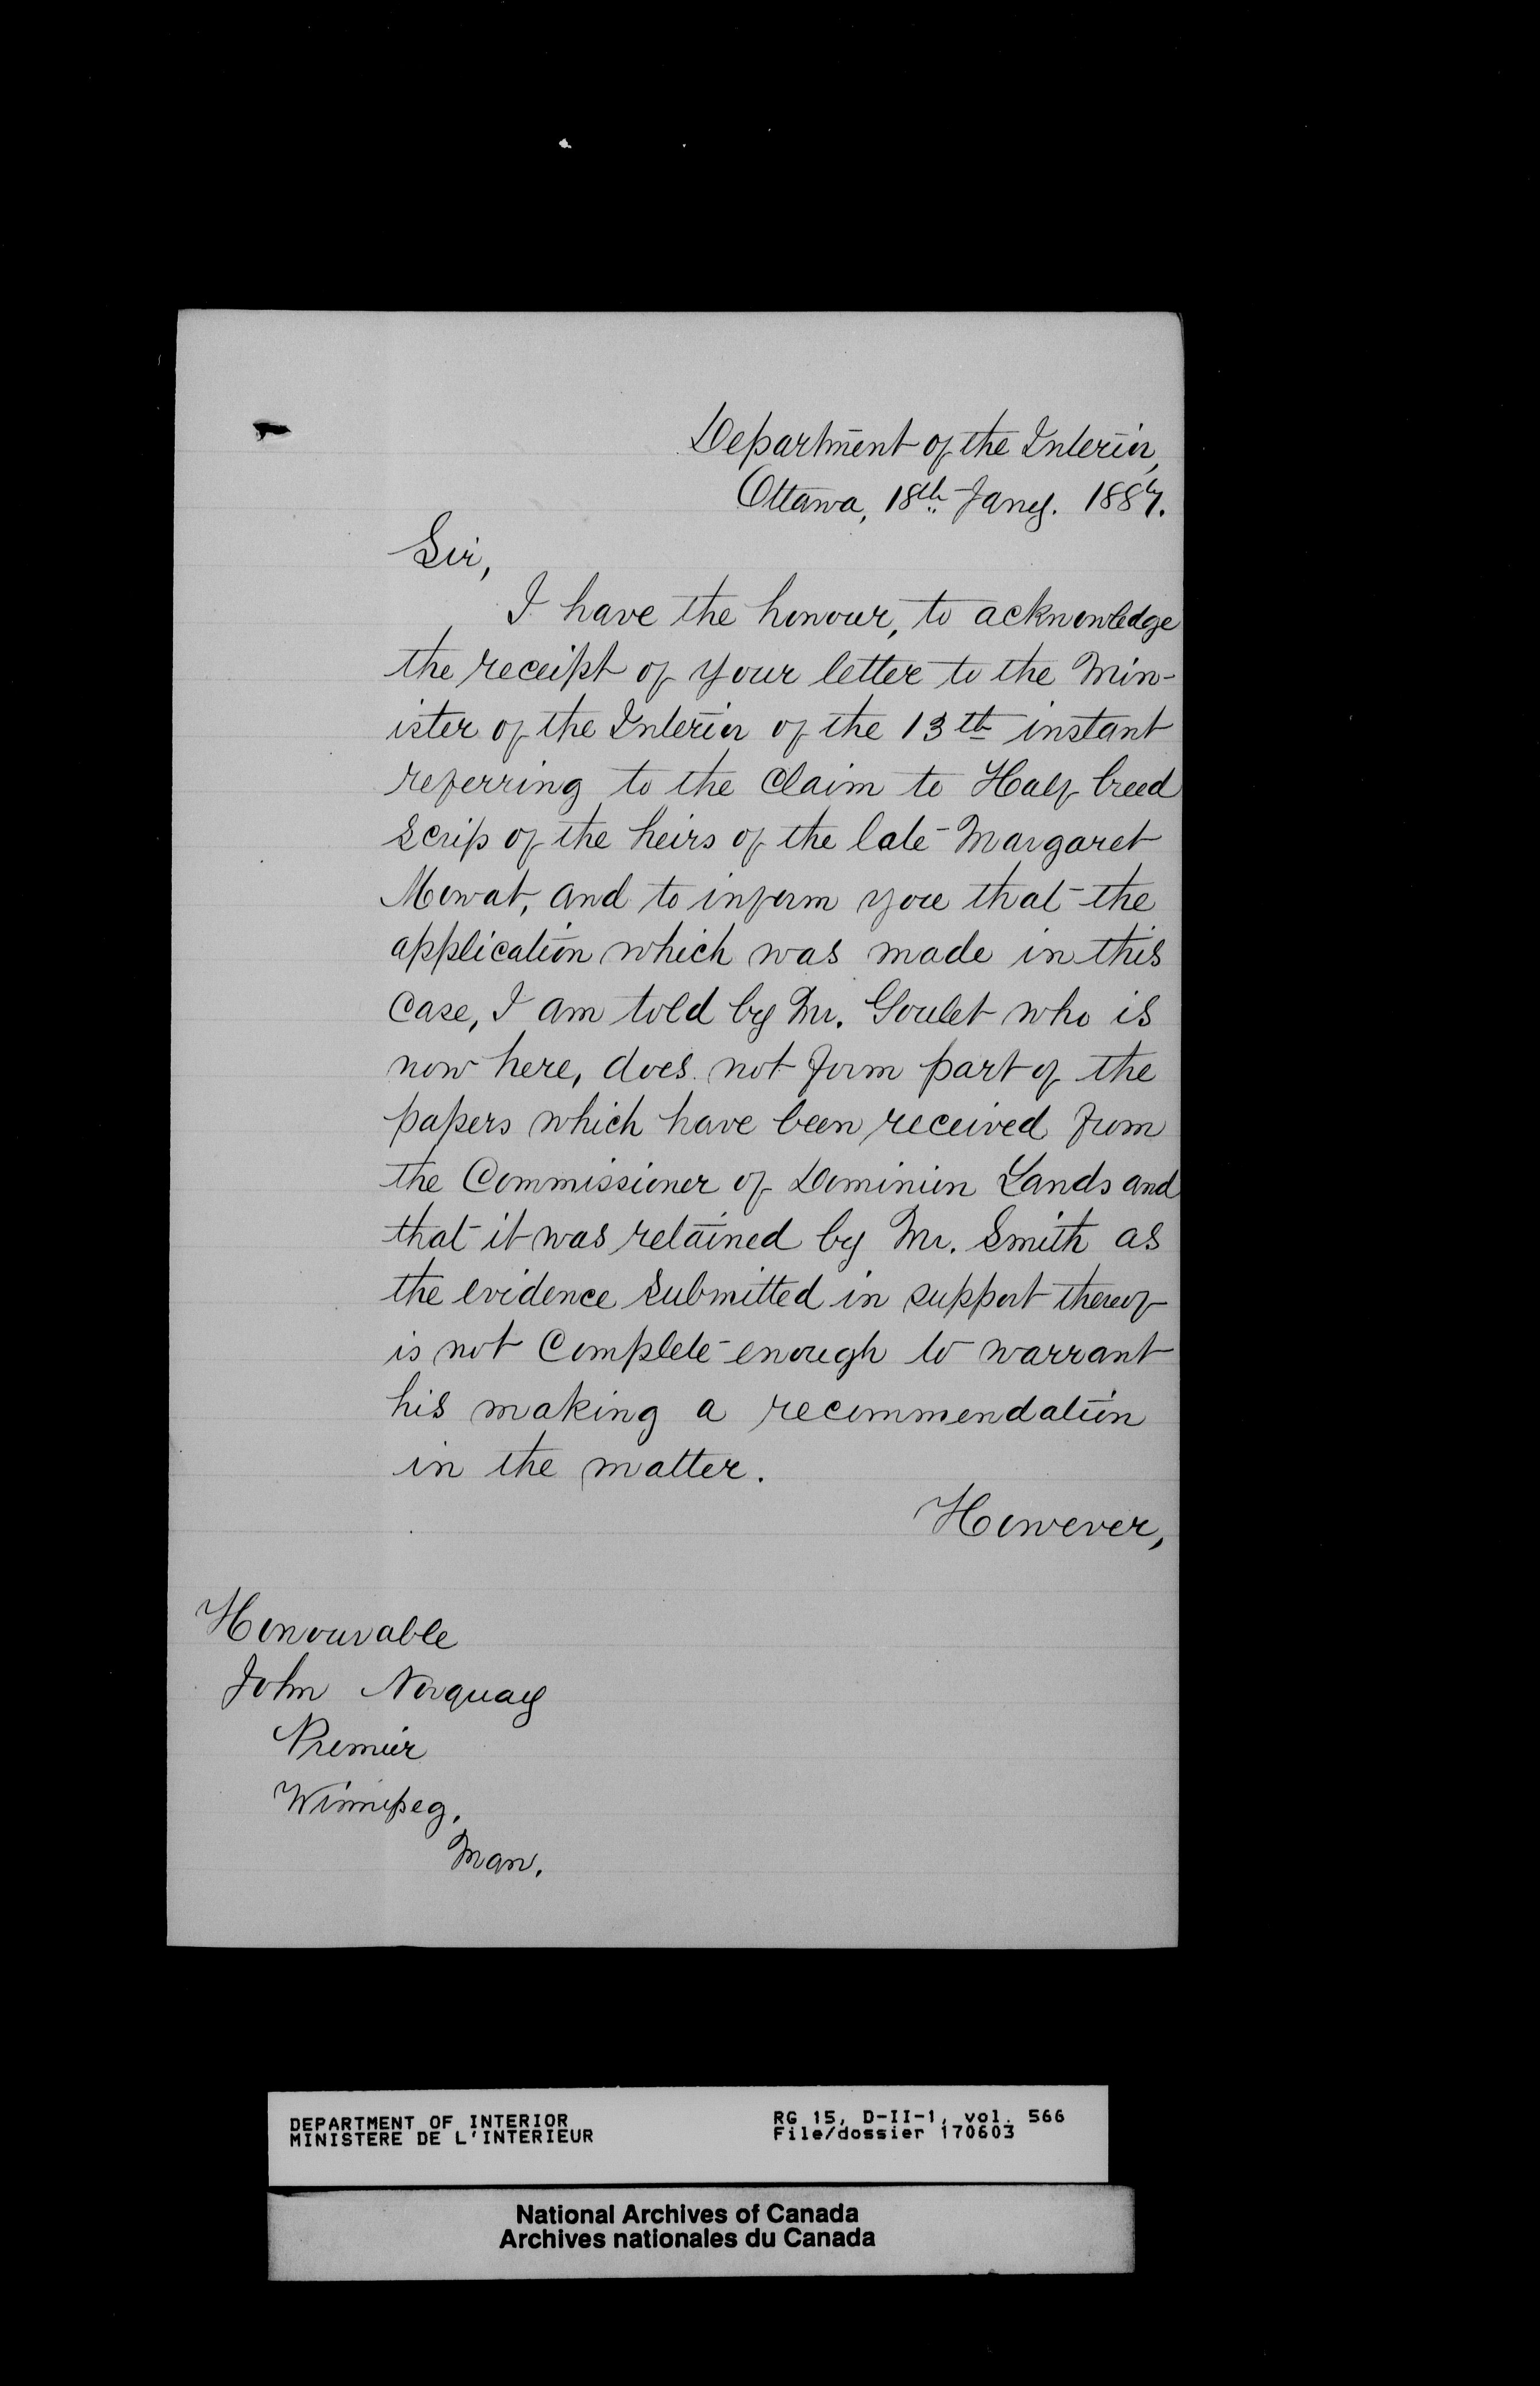 Department of the Interior,
Ottawa, 18th Jany. 1887.
Sir,
I have the honour, to acknowledge
the receipt of your letter to the Min-
ister of the Interior of the 13th instant
referring to the Claim to Half breed
Scrip of the heirs of the late Margaret
Mowat, and to inform you that the
application which was made in this
Case, I am told by Mr. Goulet who is
now here, does not form part of the
papers which have been received from
the Commissioner of Dominion Lands and
that it was retained by Mr. Smith as
the evidence submitted in support thereof
is not Complete enough to warrant
his making a recommendation
in the matter.
However,
Honourable
John Norquay
Premier
Winnipeg,
Man.
DEPARTMENT OF INTERIOR
MINISTERE DE L'INTERIEUR
RG 15, D-II-1, vol. 566
File/dossier 170603
National Archives of Canada
Archives nationales du Canada